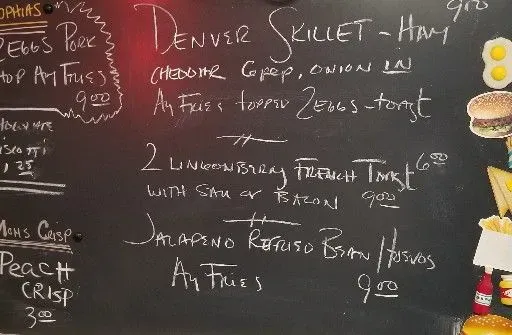 OPHIAS
2 EGGS PORK
HOP AM FRIES
9.00
1.25
MOMS CRISP
PEACH
CRISP
3.00
9.00
DENVER SKILLET - HAM
CHEDDAR G PEP, ONION IN
AM FRIES TOPPED 2 EGGS - TOAST
2 LINGONBERRY FRENCH TOAST 6.00
WITH SAU OR BACON 9.00
JALAPENO REFRIED BEAN HUEVOS
AM FRIES 9.00